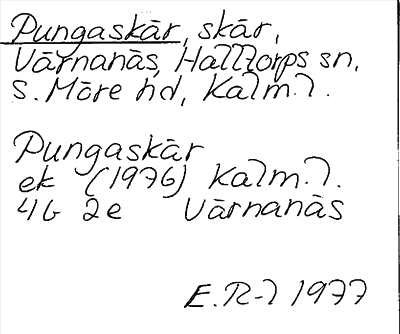 Pungaskär, skär,
Värnanäs, Halltorps sn,
S. Möre hd, Kalm. l.
Pungaskär
ek (1976) Kalm. l.
4G 2e Värnanäs
E.R-l 1977